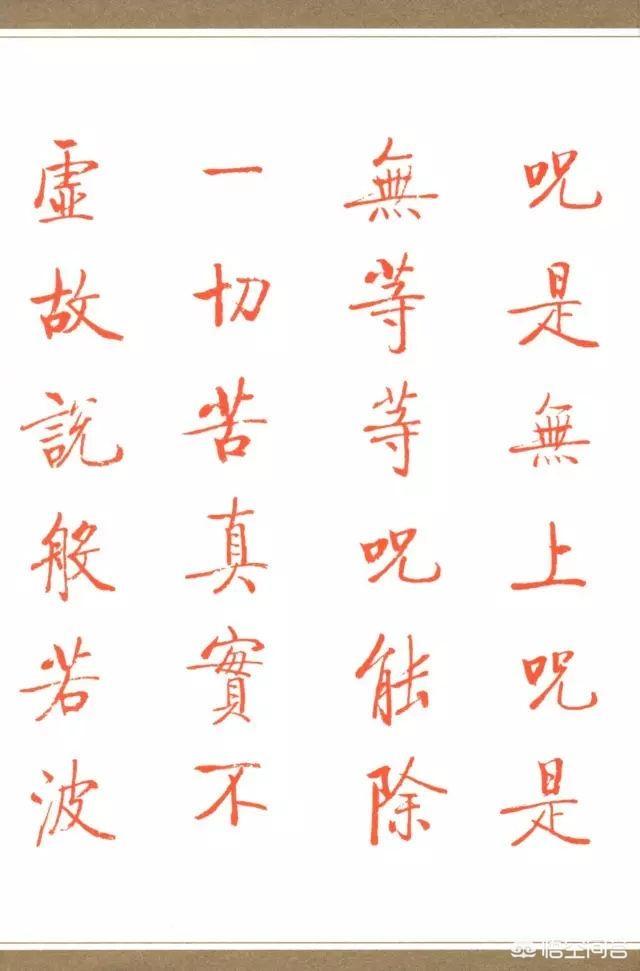 咒是無上咒是
無等等咒能除
一切苦真實不
虛故說般若波
悟空问答